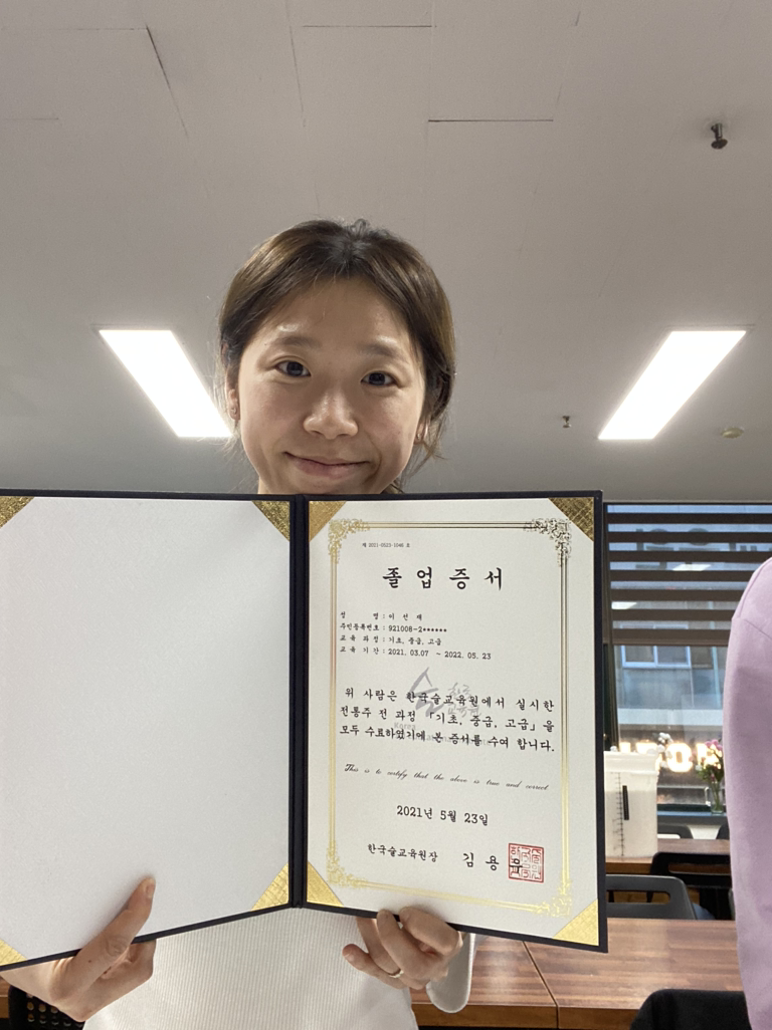 제 2021-0523-1046 호
졸업증서
성 명 : 이 선 재
주민등록번호 : 921008-2******
교 육 과 정 : 기초, 중급, 고급
교 육 기 간 : 2021. 03.07 ~ 2022. 05. 23
위 사람은 한국술교육원에서 실시한
전통주 전 과정 「기초, 중급, 고급」을
모두 수료하였기에 본 증서를 수여 합니다.
This is to certify that the above is true and correct
2021년 5월 23일
한국술교육원장 김 용